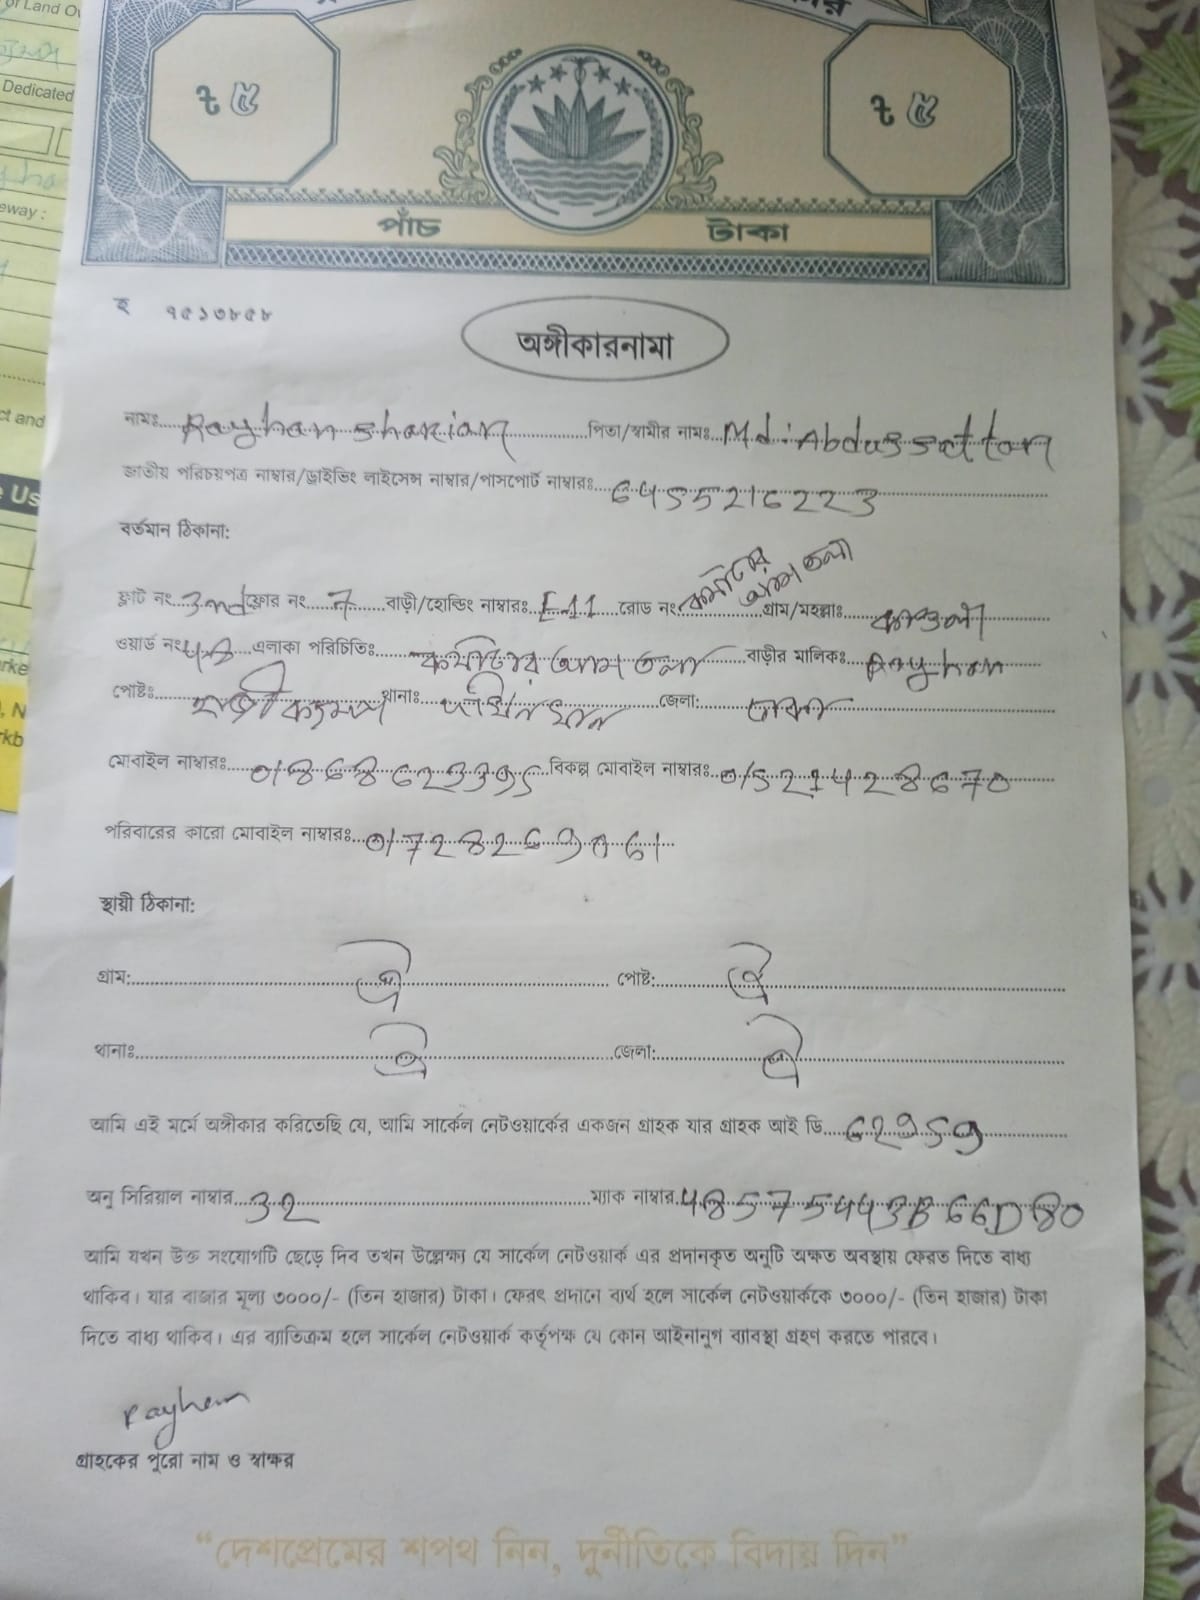 of Land Ow
Dedicated
eway :
ct and
৳ ৫ ৳ ৫
পাঁচ টাকা
হ ৭৫১৩৮৫৮
অঙ্গীকারনামা
নামঃ Rayhan sharian পিতা/স্বামীর নামঃ Md: Abdus sattar
জাতীয় পরিচয়পত্র নাম্বার/ড্রাইভিং লাইসেন্স নাম্বার/পাসপোর্ট নাম্বারঃ 6455216223
বর্তমান ঠিকানা:
ফ্লাট নং 3nd ফ্লোর নং 7 বাড়ী/হোল্ডিং নাম্বারঃ E-11 রোড নং আম তলা গ্রাম/মহল্লাঃ
ওয়ার্ড নং 48 এলাকা পরিচিতিঃ আম তলা বাড়ীর মালিকঃ Rayhan
পোষ্টঃ থানাঃ দক্ষিনখান জেলা: ঢাকা
মোবাইল নাম্বারঃ বিকল্প মোবাইল নাম্বারঃ 01521428670
পরিবারের কারো মোবাইল নাম্বারঃ
স্থায়ী ঠিকানা:
গ্রাম: ঐ পোষ্ট: ঐ
থানাঃ ঐ জেলা: ঐ
আমি এই মর্মে অঙ্গীকার করিতেছি যে, আমি সার্কেল নেটওয়ার্কের একজন গ্রাহক যার গ্রাহক আই ডি
অনু সিরিয়াল নাম্বার 32 ম্যাক নাম্বার 485754443B66DD80
আমি যখন উক্ত সংযোগটি ছেড়ে দিব তখন উল্লেক্ষ্য যে সার্কেল নেটওয়ার্ক এর প্রদানকৃত অনুটি অক্ষত অবস্থায় ফেরত দিতে বাধ্য
থাকিব। যার বাজার মূল্য ৩০০০/- (তিন হাজার) টাকা। ফেরৎ প্রদানে ব্যর্থ হলে সার্কেল নেটওয়ার্ককে ৩০০০/- (তিন হাজার) টাকা
দিতে বাধ্য থাকিব। এর ব্যাতিক্রম হলে সার্কেল নেটওয়ার্ক কর্তৃপক্ষ যে কোন আইনানুগ ব্যাবস্থা গ্রহণ করতে পারবে।
Rayhan
গ্রাহকের পুরো নাম ও স্বাক্ষর
“দেশপ্রেমের শপথ নিন, দুর্নীতিকে বিদায় দিন”